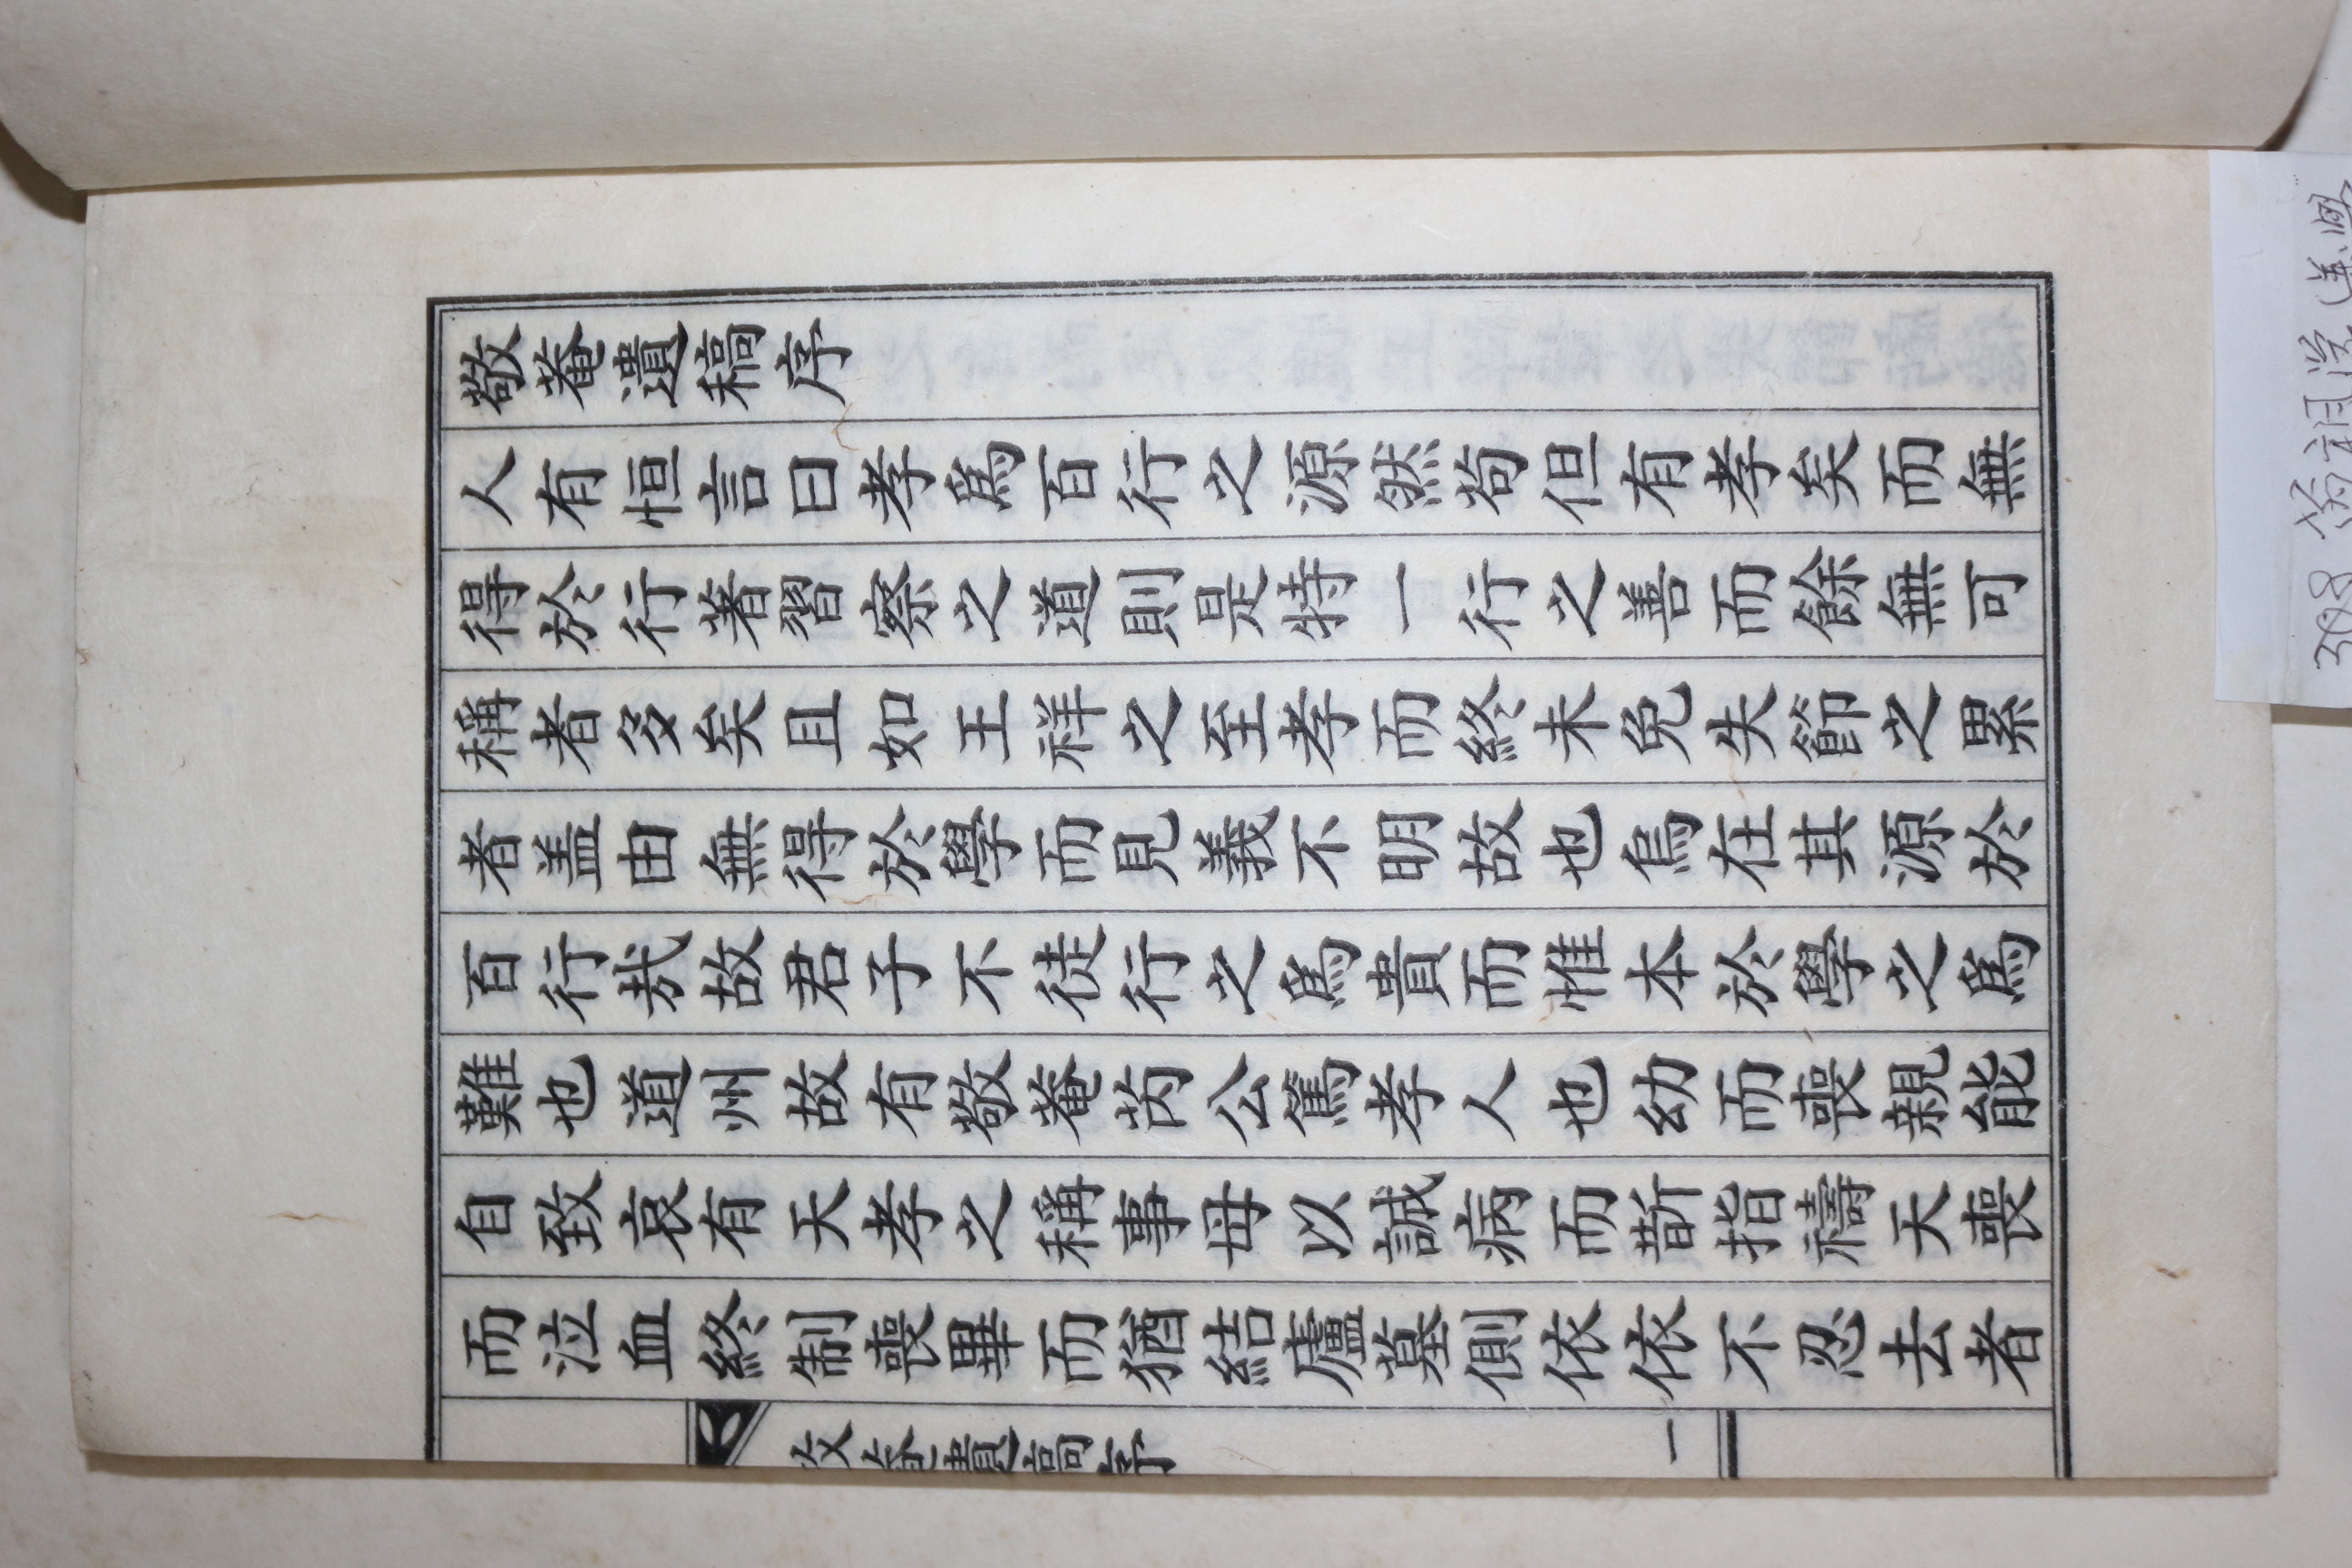 敬菴遺稿序
人有恒言曰孝爲百行之源然苟但有孝矣而無
得於行著習察之道則是特一行之善而餘無可
稱者多矣且如王祥之至孝而終未免失節之累
者盖由無得於學而見義不明故也烏在其源於
百行哉故君子不徒行之爲貴而惟本於學之爲
難也道州故有敬菴芮公篤孝人也幼而喪親能
自致哀有天孝之稱事母以誠病而斮指禱天喪
而泣血終制喪畢而猶結廬墓側依依不忍去者
敬菴遺稿序 一
3098